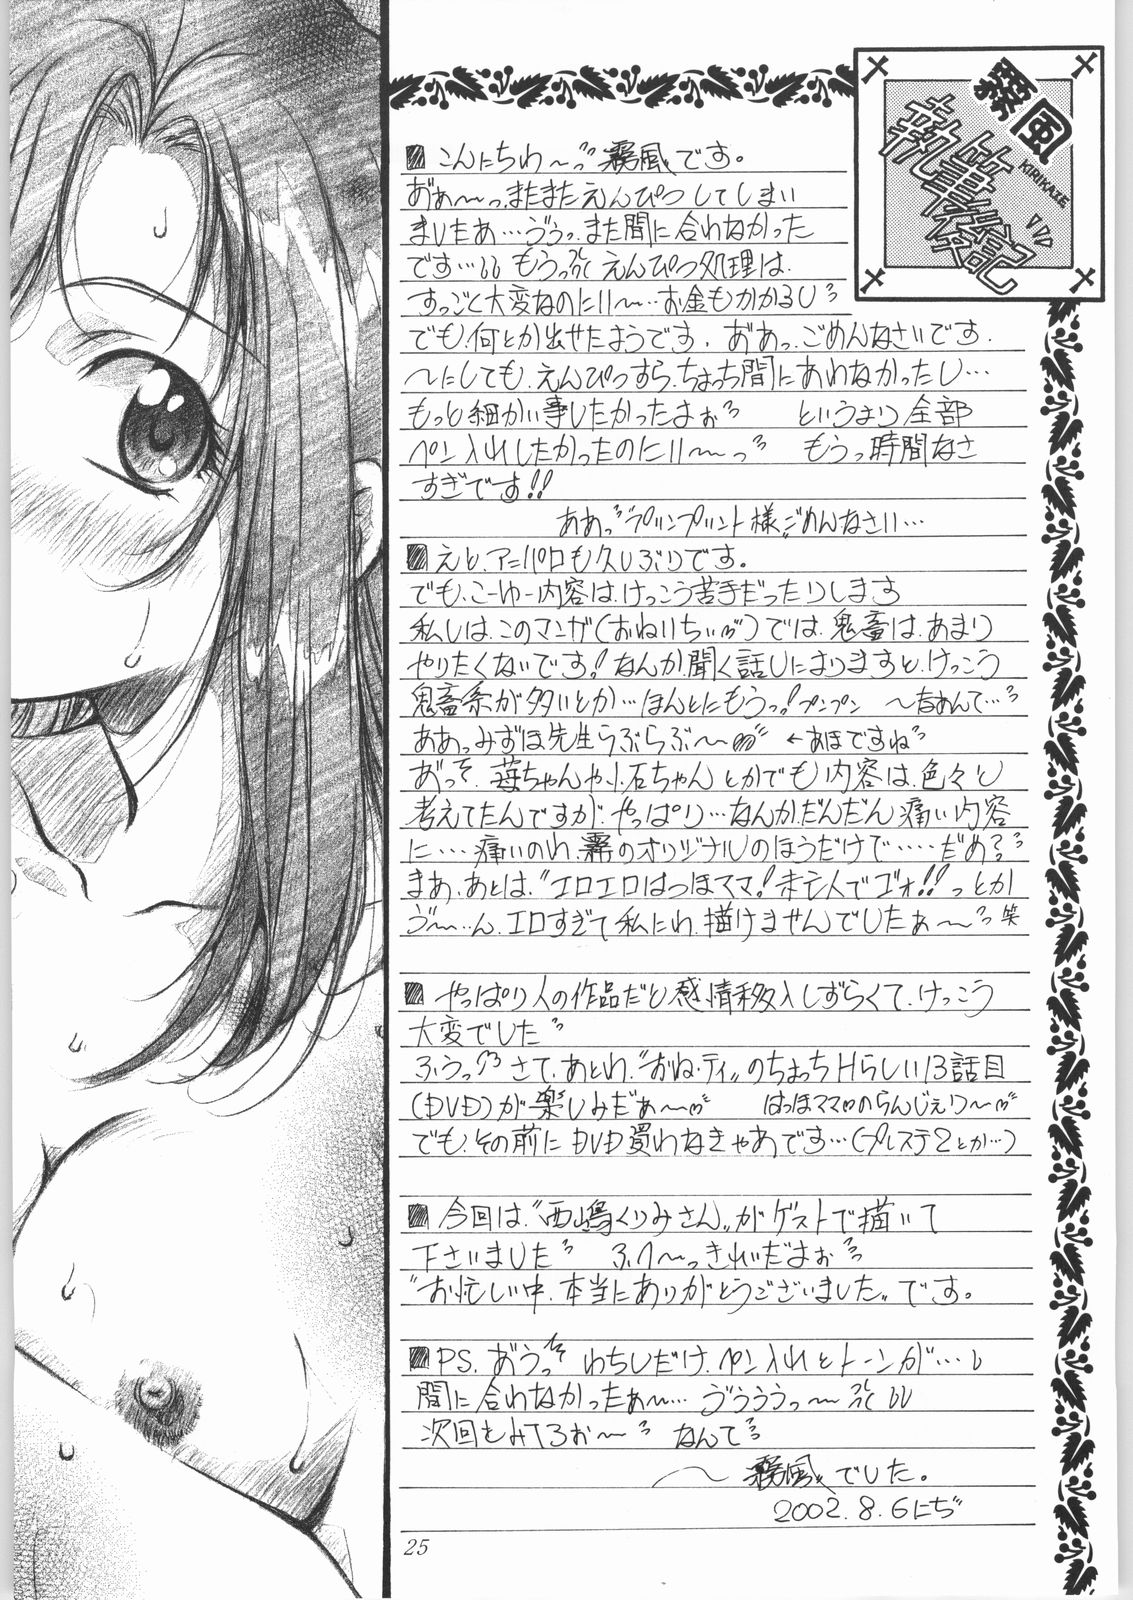 霧風
KIRIKAZE
執筆後記
■こんにちわ～゛霧風です。
おぁ～っ、またまたえんぴつしてしまい
ましたぁ…ゔぅっ、また間に合わなかった
です… もうっ えんぴつ処理は、
すっごく大変なのにﾘﾘ～…お金もかかるし゛
でも、何とか出せたようです。おあっ、ごめんなさいです。
～にしても、えんぴつすら、ちょっち間にあわなかったし…
もっと細かい事したかったよぉ゛ というより全部
ペン入れしたかったのにﾘﾘ～っ゛ もうっ時間なさ
すぎです!!
ああっ゛プリンプリント様゛ごめんなさい…
■えと、アニパロも久しぶりです。
でも、こーゆー内容は、けっこう苦手だったりします
私しは、このマンガ(おねいちぃ)では、鬼畜は、あまり
やりたくないです!なんか、聞く話しによりますと、けっこう
鬼畜系が多いとか…ほんとにもうっ!プンプン ～なあんて…゛
ああっみずほ先生らぶらぶ～ ←あほですね゛
おっと、苺ちゃんや小石ちゃんとかでも内容は、色々と
考えてたんですが、やっぱり…なんか、だんだん痛い内容
に…・痛いのわ、霧のオリジナルのほうだけで……だめ?゛
まあ、あとは、“エロエロはつほママ!未亡人でゴォ!!”っとか
ゔ～…ん、エロすぎて私にわ、描けませんでしたぁ～゛笑
■やっぱり人の作品だと感情移入しずらくて、けっこう
大変でした゛
ふうっ さて、あとわ、“おね・ティ”のちょっちHらしい13話目
(DVD)が楽しみだぁ～ はつほママのらんじぇりー～
でも、その前にDVD買わなきゃあです…(プレステ2とか…)
■今回は、“西嶋くりみさん”がゲストで描いて
下さいました゛ ふ〜～っきれいだよぉ゛
“お忙しい中、本当にありがとうございました”です。
■PS. おうっ わちしだけ、ペン入れとトーンが…し
間に合わなかったぁ～… ゔぅぅぅっ～
次回をみてろぉ～゛ なんて゛
～霧風でした。
2002.8.6にぢ
25